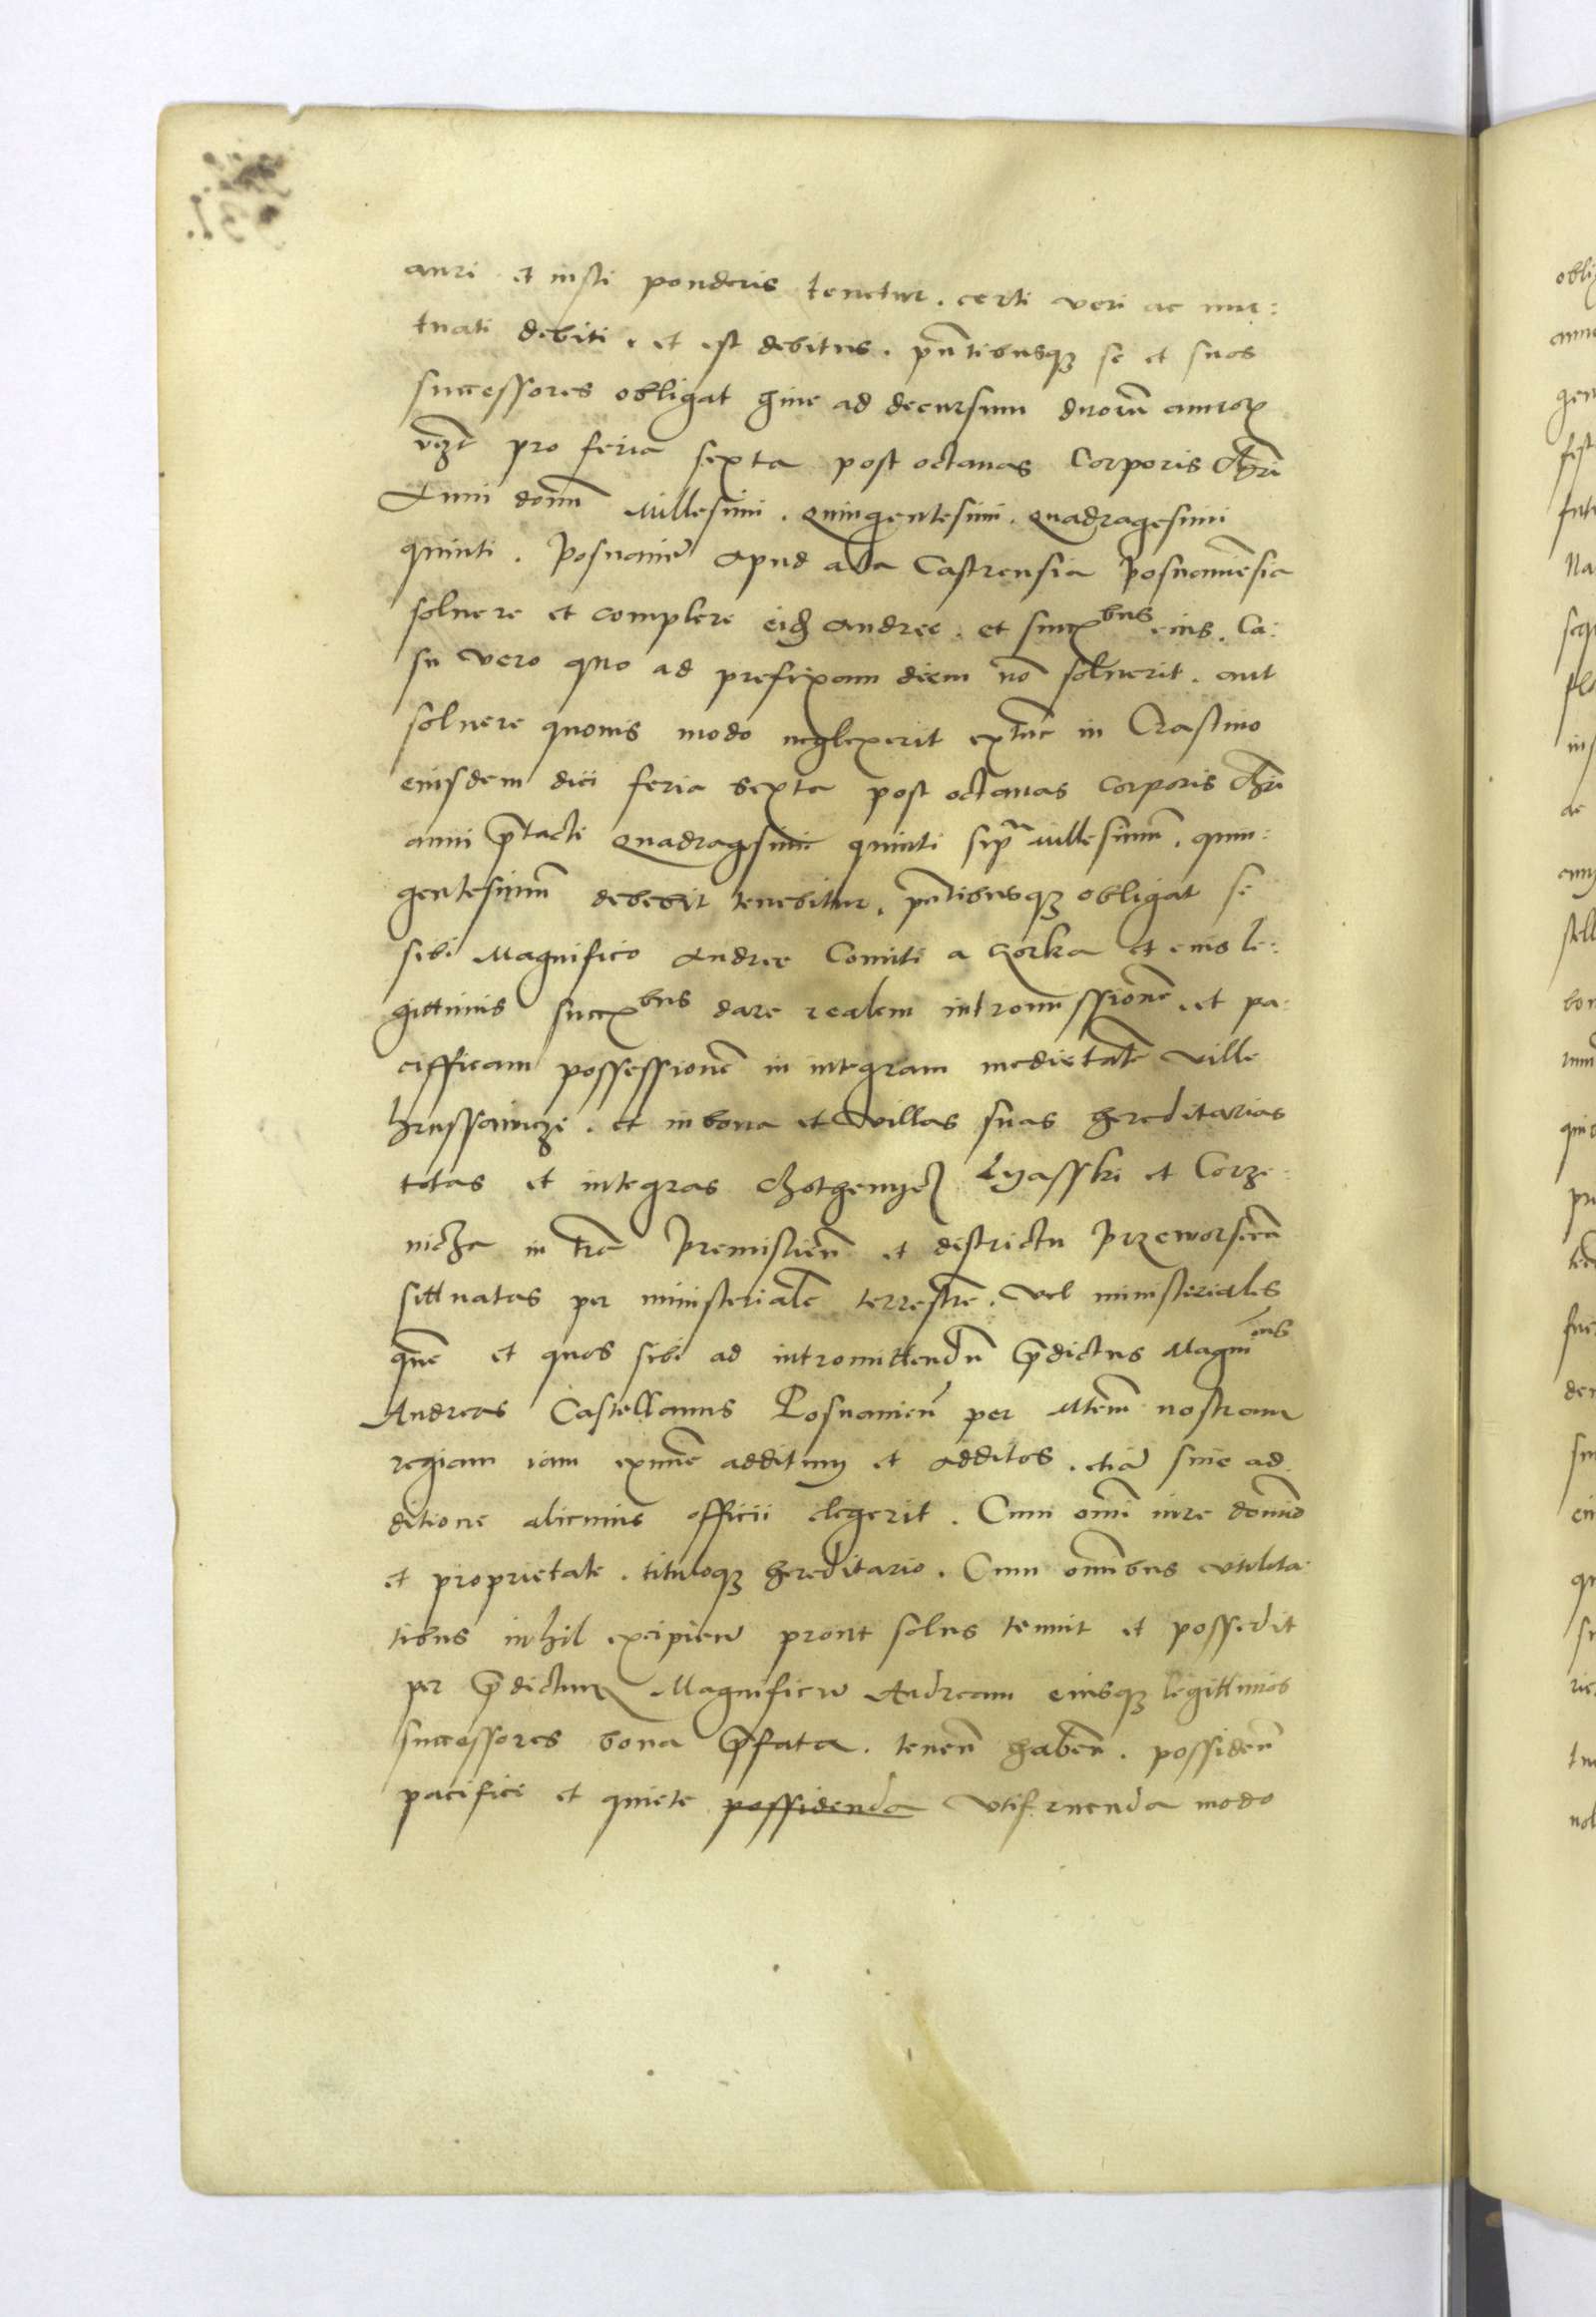 auri et iusti ponderis tenetur . certi veri ac mu:
tuati debiti . et est debitus . pn̄tibusqʒ se et suos
successores obligat hinc ad decursum duorū annoꝝ
vꝫt pro feria sexta post octauas Corporis Chri
Anni domī Millesimi . Quingentesimi . Quadragesimi
quinti . Posnanie apud acta Castrensia Posnaniēsia
soluere et complere eidē Andree . et succꝝbus eius . Ca:
su vero quo ad prefixam diem nō soluerit . aut
soluere quouis modo neglexerit extūc in Crastino
eiusdem diei feria sexta post octauas Corporis Chri
anni p̄tacti Quadragesimi quinti supra Millesimū . quin:
gentesimū debebit tenebitur . pn̄tibusqʒ obligat se
sibi Magnifico Andree Comiti a Gorka et eius le:
gittimis succꝝbus dare realem intromissionē . et pa:
cifficam possessionē in integram medietatē ville
hrussowiczi . et in bona et villas suas hereditarias
totas et integras Chothenyecz Lyasski et Corze:
nicza in trā Premislien̄ et districtu Przeworscen̄
sittuatas per ministerialē terrestrē . vel ministeriales
quē et quos sibi ad intromittendū p̄dictus Magnicus
Andreas Castellanus Posnanien̄ per Mtem̄ nostram
regiam iam exnūc additum et additos . etiā sine ad:
ditione alicuius officii elegerit . Cum omī iure domīo
et proprietate . tituloqʒ hereditario . Cum omībus vtilita:
tibus nihil excipiendo prout solus tenuit et possedit
per p̄dictum Magnificū Andream eiusqʒ legittimos
successores bona p̄fata . tenen̄ haben̄ . possiden̄
pacifice et quiete possidenda vtifruenda modo